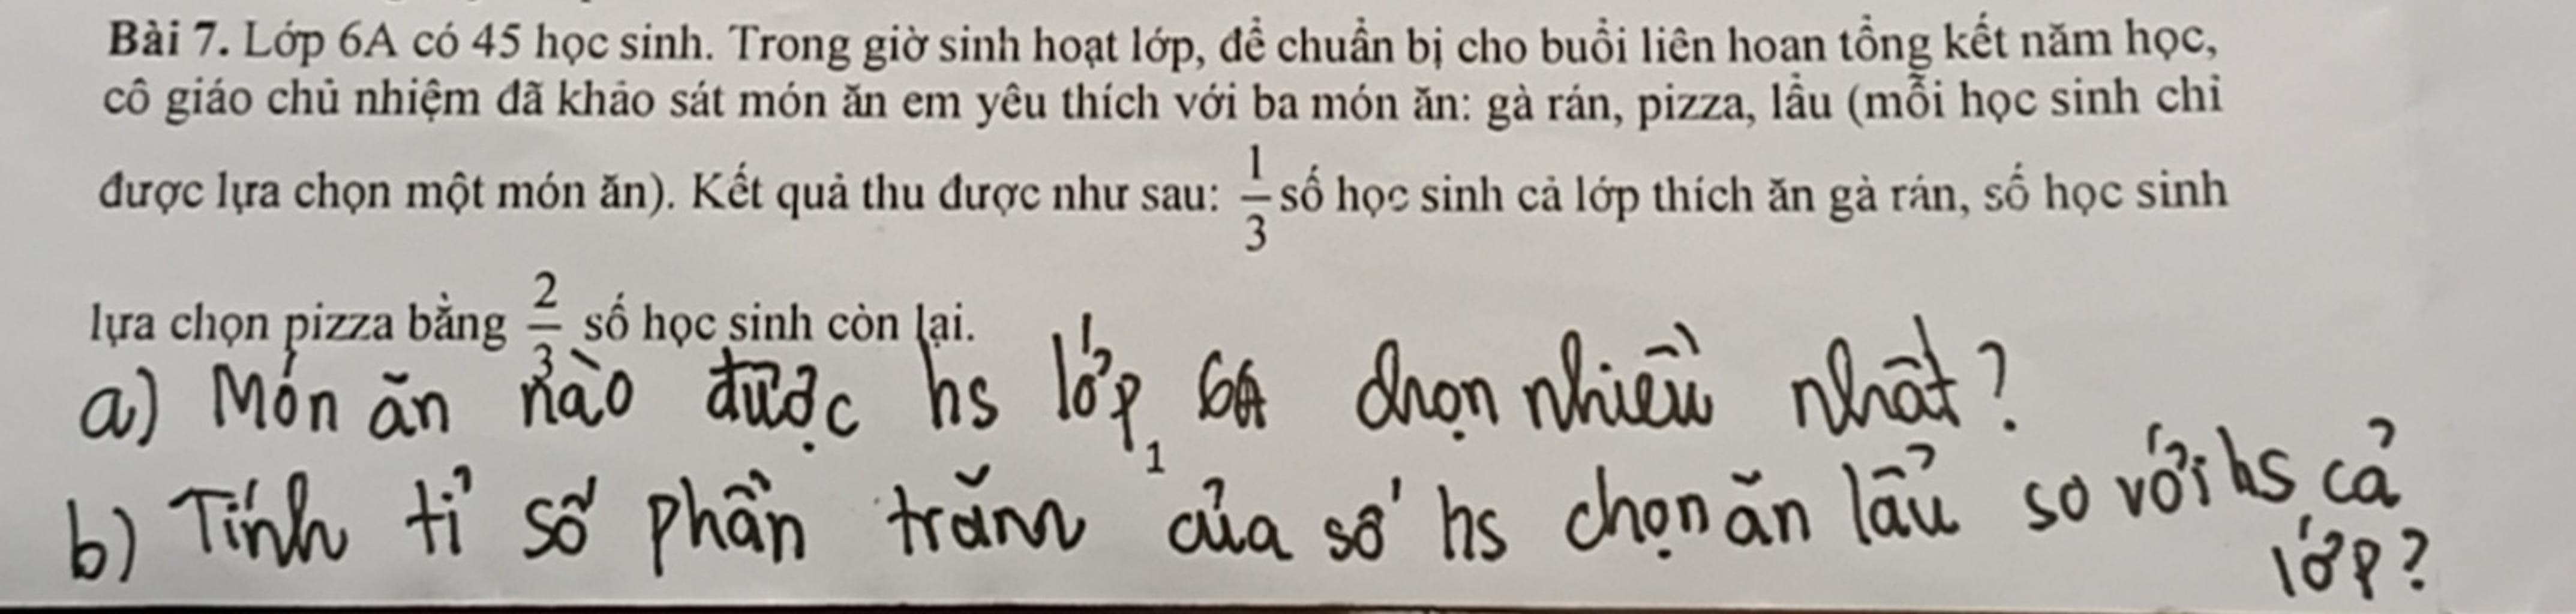 Bài 7. Lớp 6A có 45 học sinh. Trong giờ sinh hoạt lớp, để chuẩn bị cho buổi liên hoan tổng kết năm học,
cô giáo chủ nhiệm đã khảo sát món ăn em yêu thích với ba món ăn: gà rán, pizza, lẩu (mỗi học sinh chỉ
được lựa chọn một món ăn). Kết quả thu được như sau: 1/3 số học sinh cả lớp thích ăn gà rán, số học sinh
lựa chọn pizza bằng 2/3 số học sinh còn lại.
a) Món ăn nào được hs lớp 6A chọn nhiều nhất?
1
b) Tính tỉ số phần trăm của số hs chọn ăn lẩu so với hs cả
lớp?